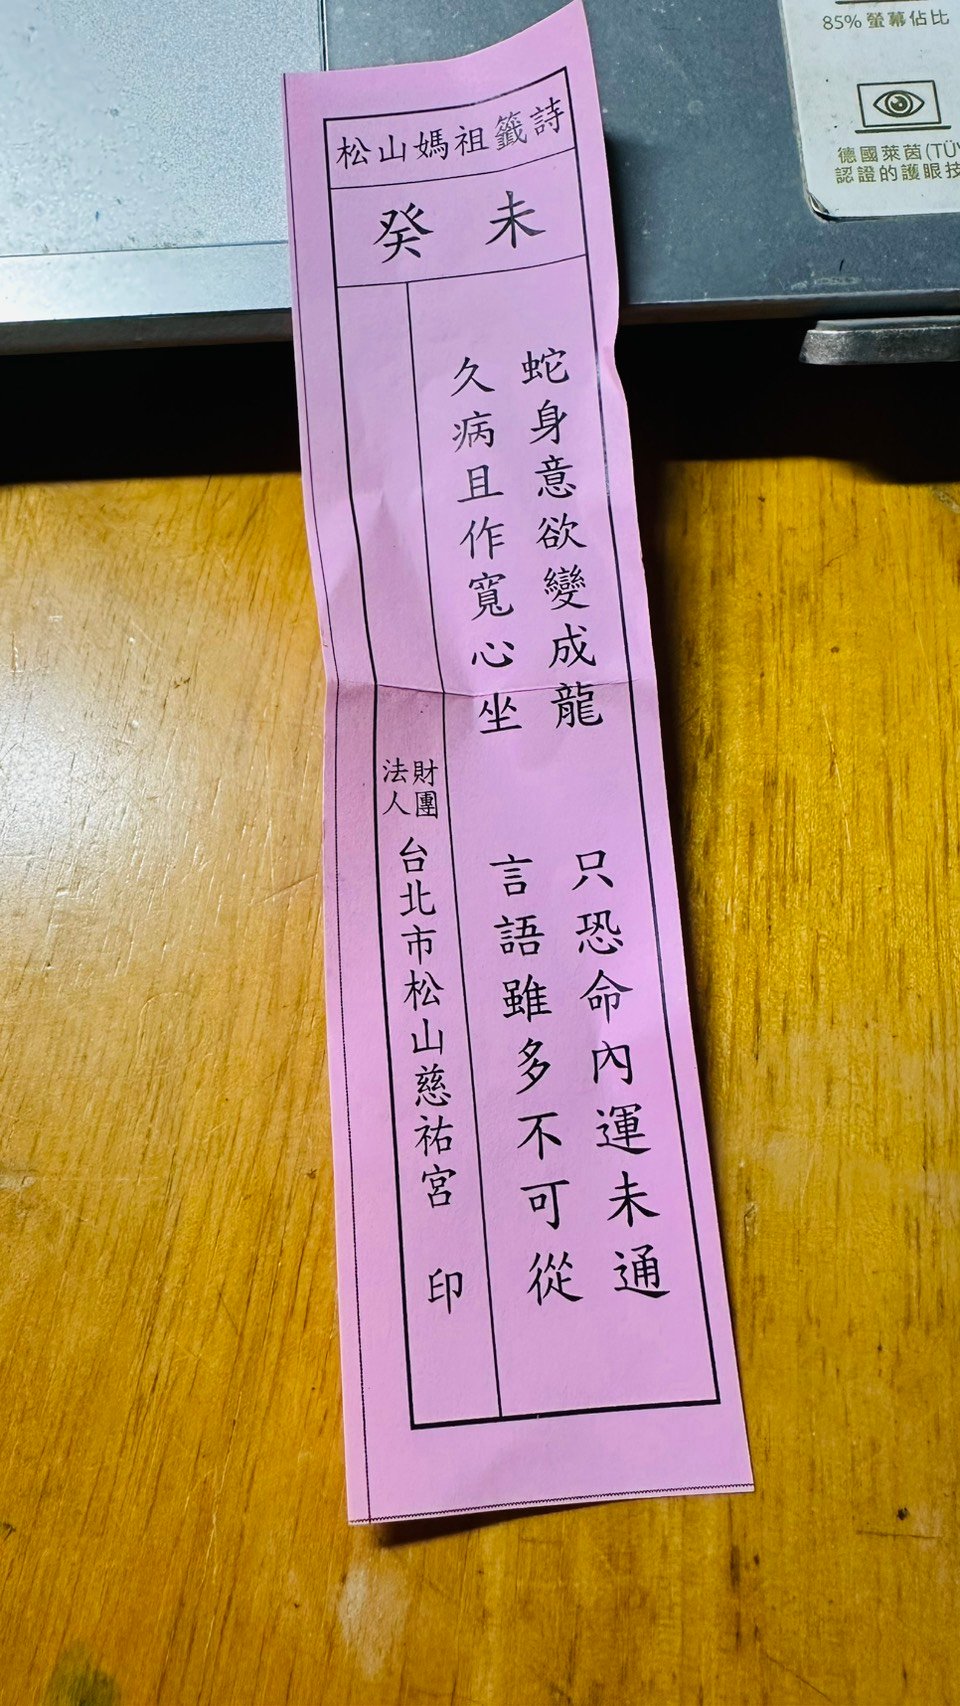 松山媽祖籤詩
癸未
蛇身意欲變成龍
只恐命內運未通
久病且作寬心坐
言語雖多不可從
財團法人
台北市松山慈祐宮 印
85% 螢幕佔比
德國萊茵(TÜV
認證的護眼技